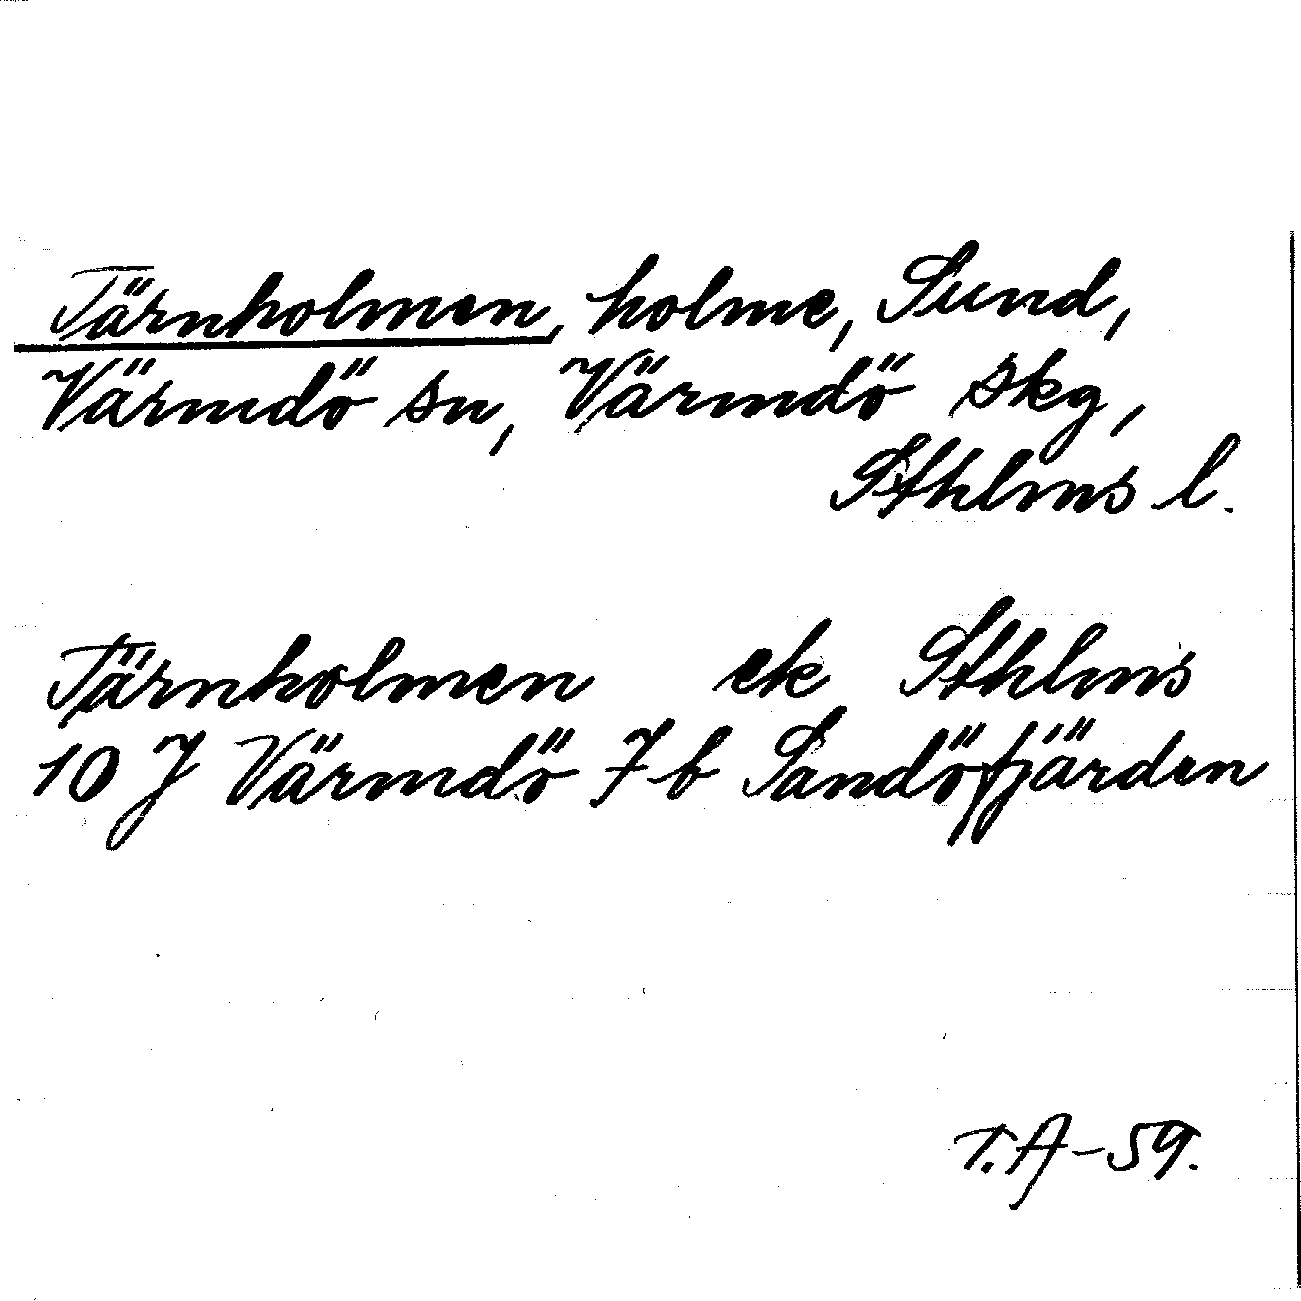 Tärnholmen, holme, Sund,
Värmdö sn, Värmdö skg,
Sthlms l.
Tärnholmen ek Sthlms
10 J Värmdö 7 b Sandöfjärden
T.A-59.